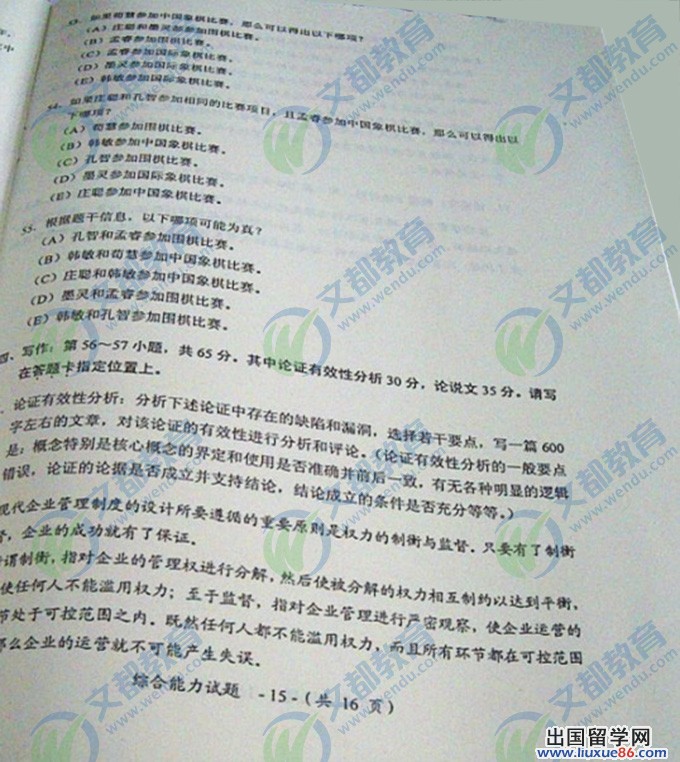 53. 如果荀慧参加中国象棋比赛，那么可以得出以下哪项？
(A) 庄聪和墨灵都参加围棋比赛。
(B) 孟睿参加围棋比赛。
(C) 孟睿参加国际象棋比赛。
(D) 墨灵参加国际象棋比赛。
(E) 韩敏参加国际象棋比赛。
54. 如果庄聪和孔智参加相同的比赛项目，且孟睿参加中国象棋比赛，那么可以得出以
下哪项？
(A) 荀慧参加围棋比赛。
(B) 韩敏参加中国象棋比赛。
(C) 孔智参加围棋比赛。
(D) 墨灵参加国际象棋比赛。
(E) 庄聪参加中国象棋比赛。
55. 根据题干信息，以下哪项可能为真？
(A) 孔智和孟睿参加围棋比赛。
(B) 韩敏和荀慧参加中国象棋比赛。
(C) 庄聪和韩敏参加中国象棋比赛。
(D) 墨灵和孟睿参加围棋比赛。
(E) 韩敏和孔智参加围棋比赛。
四、写作：第 56～57 小题，共 65 分。其中论证有效性分析 30 分，论说文 35 分。请写
在答题卡指定位置上。
论证有效性分析：分析下述论证中存在的缺陷和漏洞，选择若干要点，写一篇 600
字左右的文章，对该论证的有效性进行分析和评论。（论证有效性分析的一般要点
是：概念特别是核心概念的界定和使用是否准确并前后一致，有无各种明显的逻辑
错误，论证的论据是否成立并支持结论，结论成立的条件是否充分等等。）
现代企业管理制度的设计所要遵循的重要原则是权力的制衡与监督。只要有了制衡
督，企业的成功就有了保证。
谓制衡，指对企业的管理权进行分解，然后使被分解的权力相互制约以达到平衡，
使任何人不能滥用权力；至于监督，指对企业管理进行严密观察，使企业运营的
节处于可控范围之内。既然任何人都不能滥用权力，而且所有环节都在可控范围
那么企业的运营就不可能产生失误。
综合能力试题 - 15 -（共 16 页）
文都教育
www.wendu.com
出国留学网
www.liuxue86.com